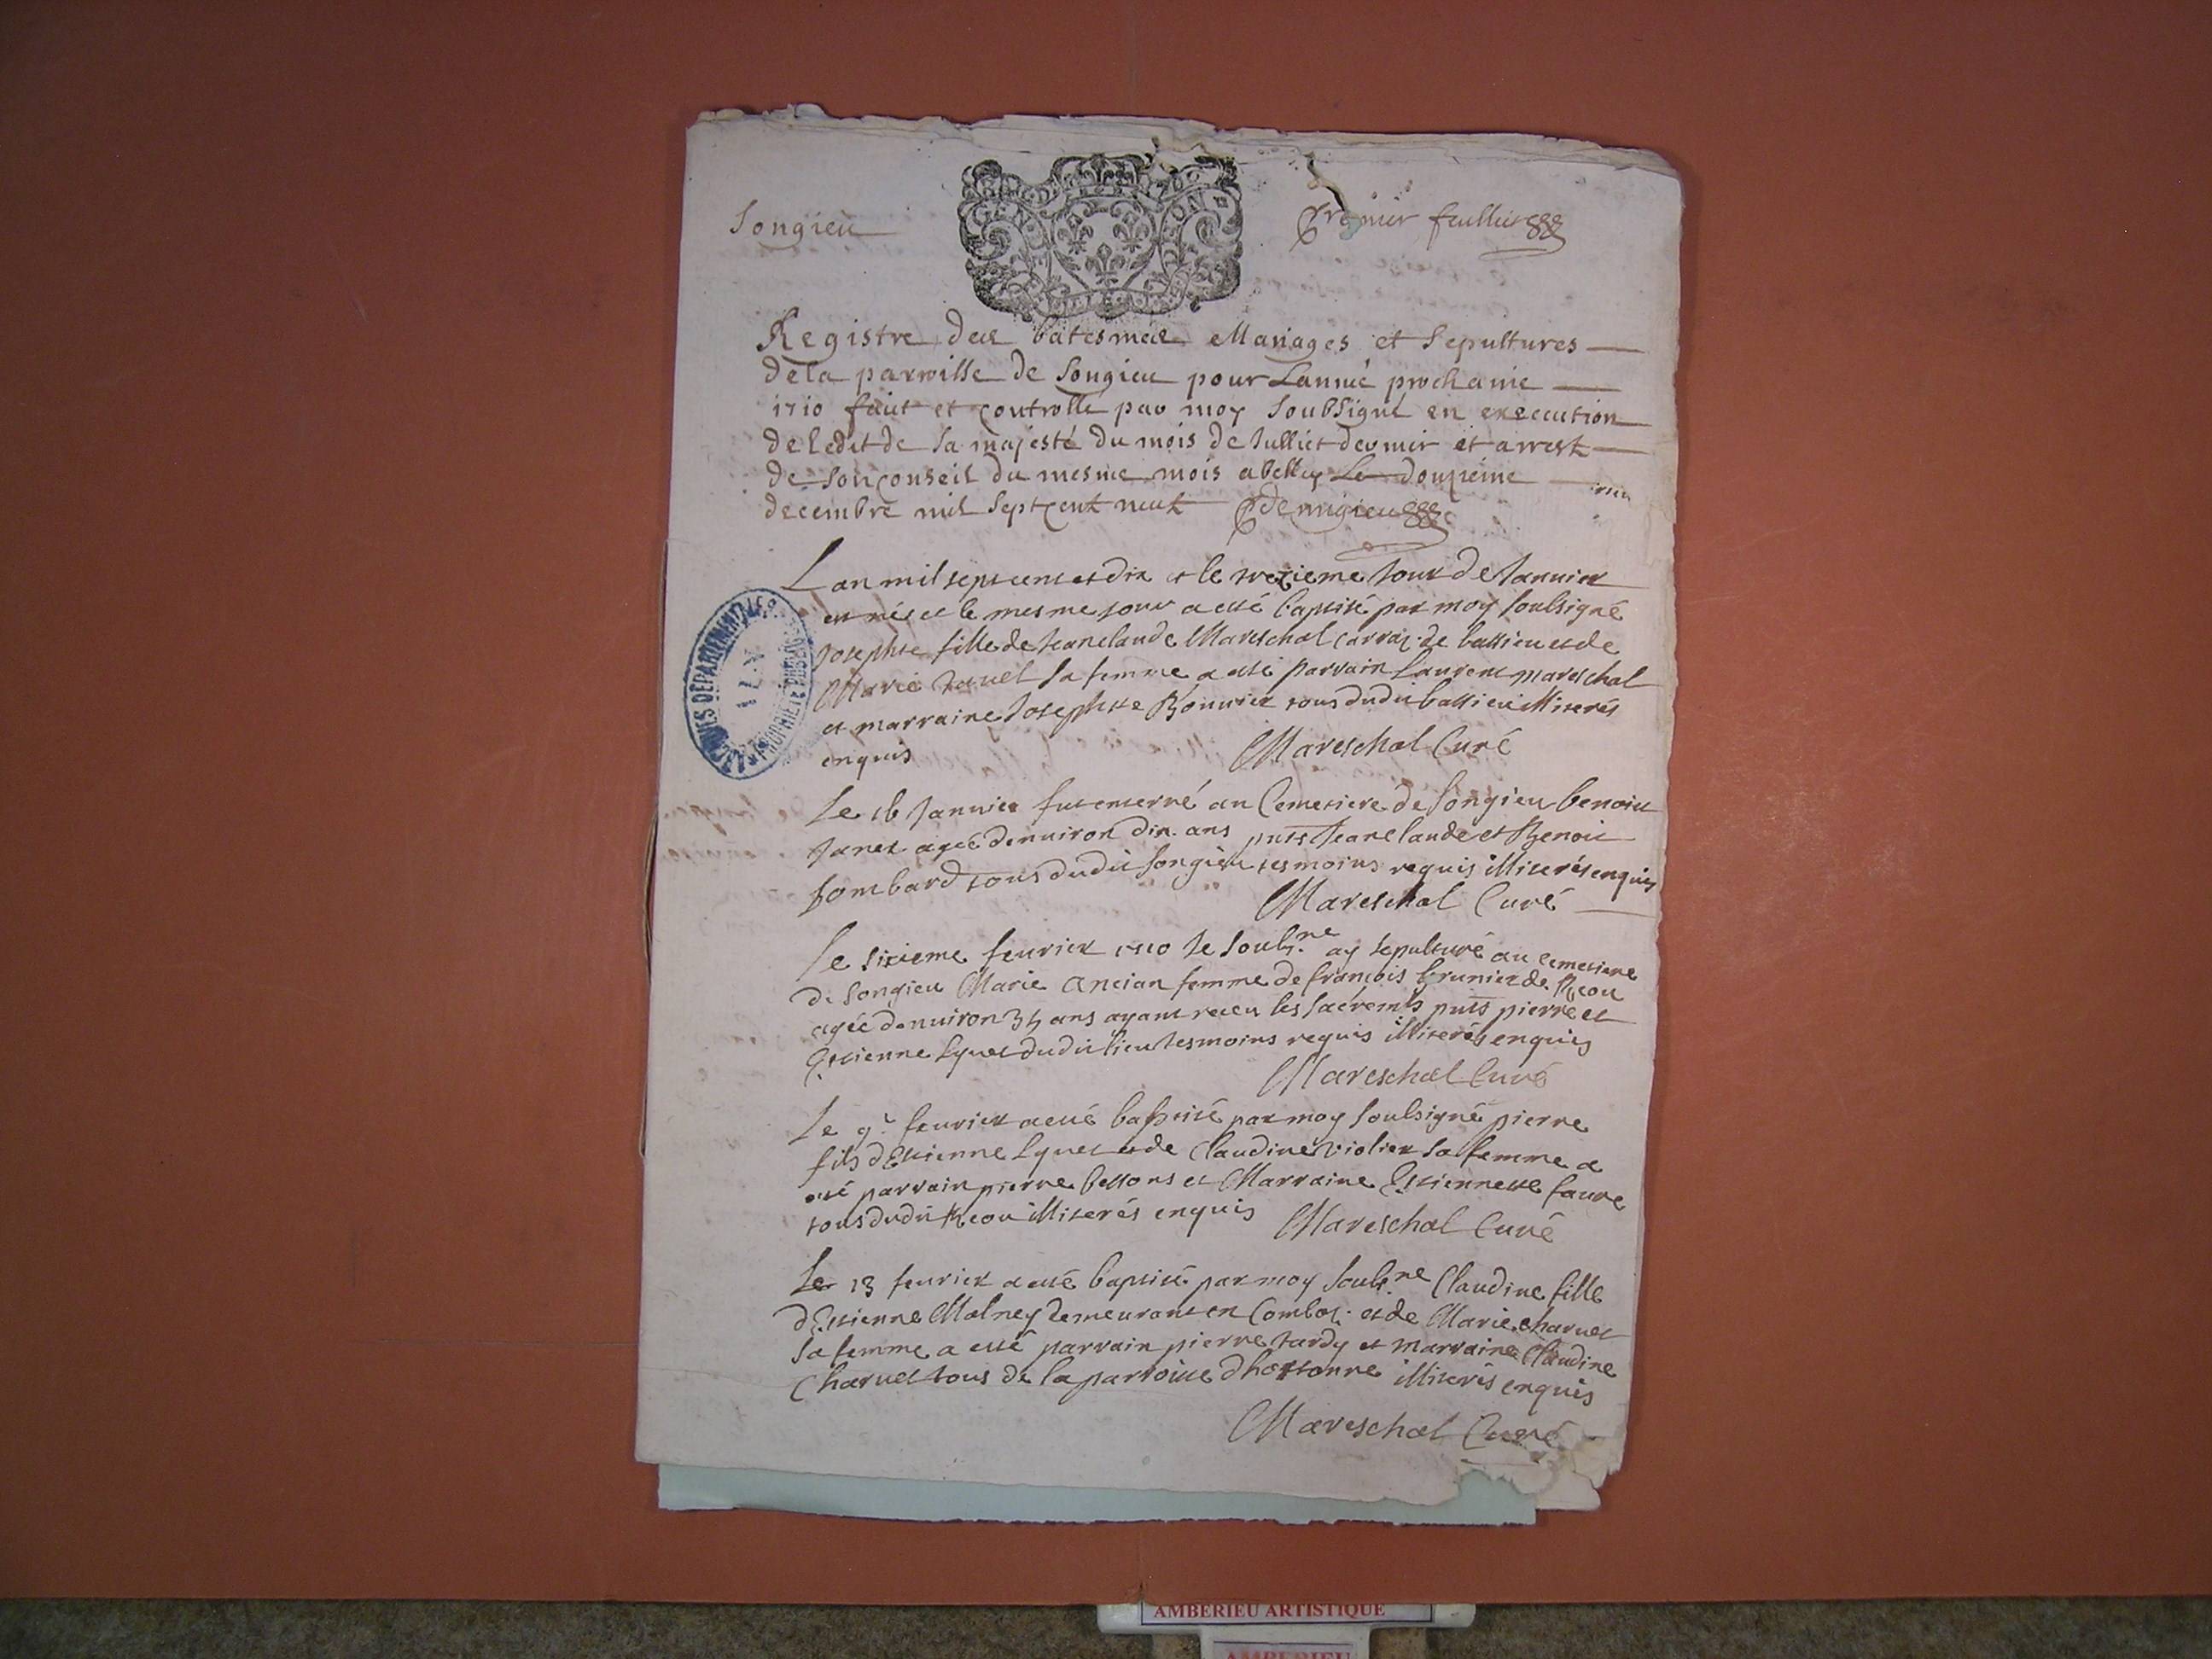 Songieu
Premier feulliet
GEN DIJON
Registre des batesmes Mariages et Sepultures
de la parroisse de Songieu pour Lanneé prochaine
1710 faict et controllé par moy Soubsigné en execcution
de ledit de Sa majesté du mois de Julliet dernier et arrest
de Son Conseil du mesme mois a belley Le douzieme
decembre mil Sept Cent neuf Demigieu
L an mil sept cent et dix et le trezieme Jour de Janvier
est née et le mesme jour a esté baptisé par moy soubsigné
Josephte fille de Jean claude Mareschal carraz de bassieu et de
Marie Janet sa femme a esté parrain Laurent mareschal
et marraine Josephte Bonnier tous dudit bassieu illiterés
enquis
Mareschal Curé
Le 16 Janvier fut enterré au Cemetiere de Songieu benoite
Janet ageé denuiron dix ans pnts Jean Claude et Benoit
Lombard tous dudit Songieu tesmoins requis illiterés enquis
Mareschal Curé
Le sixieme feurier 1710 Je soubs.ne ay sepulturé au cemetiere
de Songieu Marie Ancian femme de françois brunier de
ageé denuiron 35 ans ayant receu les sacrements pnts pierre et
Estienne Lyuet dudit lieu tesmoins requis illiterés enquis
Mareschal Curé
Le 9e feurier a esté baptisé par moy soubsigné pierre
fils d Estienne Lyuet et de Claudine Violier sa femme a
esté parrain pierre bessons et Marraine Estiennette faure
tous dudit illiterés enquis
Mareschal Curé
Le 13 feurier a esté baptisé par moy soubs.ne Claudine fille
d Estienne Malney demeurant en Comboz et de Marie charuet
sa femme a esté parrain pierre tardy et marraine Claudine
Charuet tous de la parroisse d hottonne illiterés enquis
Mareschal Curé
ARCHIVES DÉPARTEMENTALES
AIN
PROPRIÉTÉ PUBLIQUE
AMBERIEU ARTISTIQUE
AMBERIEU